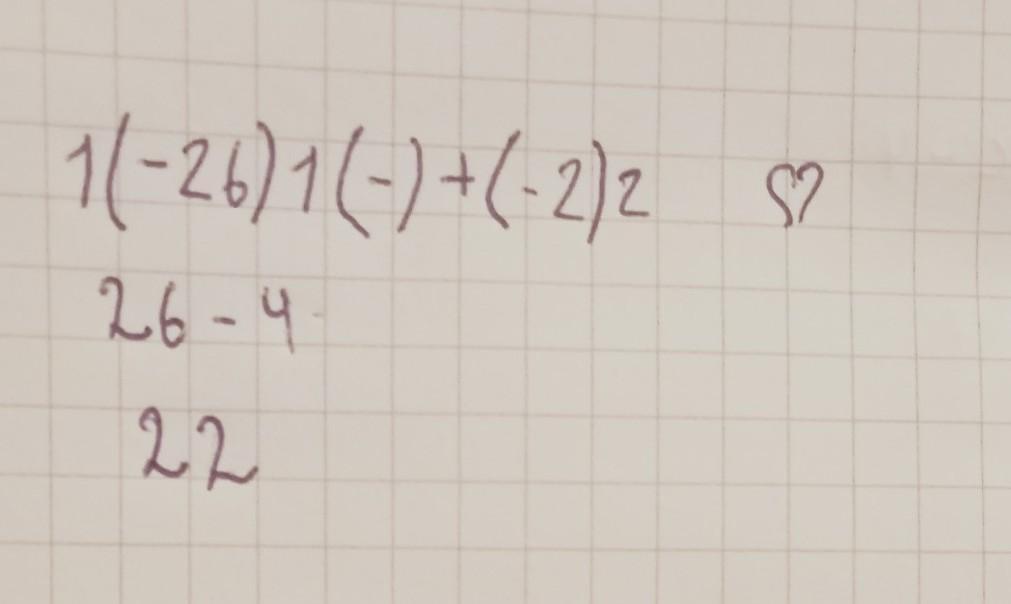 1(-26)1(-)+(-2)2 ♡
26-4
22